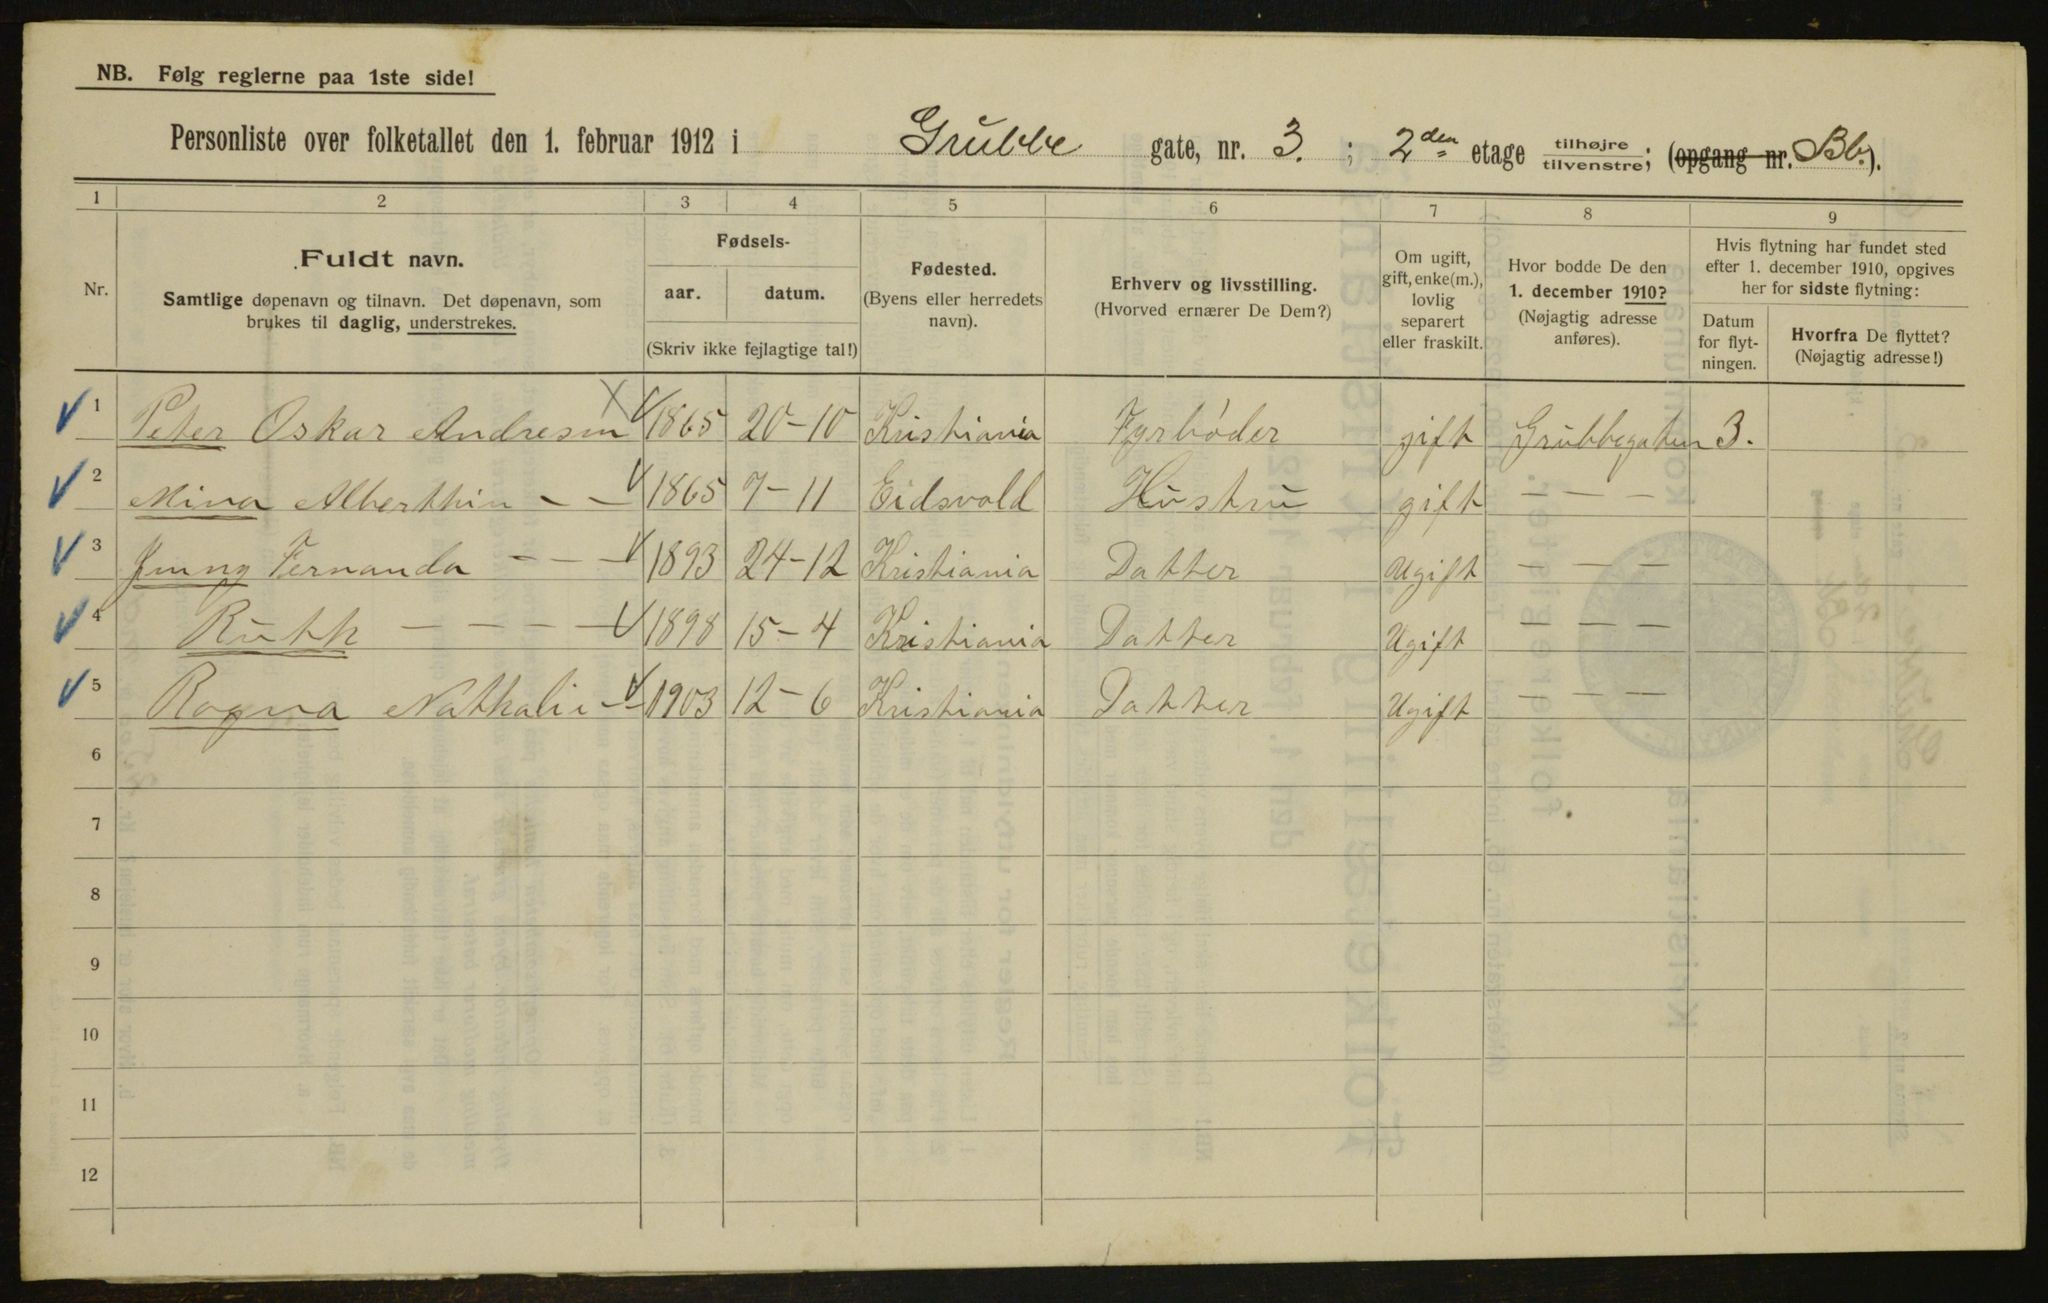 NB. Følg reglerne paa 1ste side!
Personliste over folketallet den 1. februar 1912 i Grubbe gate, nr. 3. ; 2den etage tilhøjre tilvenstre; (opgang nr. Bb.).
1 2 3 4 5 6 7 8 9
Nr.
Fuldt navn.
Samtlige døpenavn og tilnavn. Det døpenavn, som
brukes til daglig, understrekes.
Fødsels-
aar. datum.
(Skriv ikke fejlagtige tal!)
Fødested.
(Byens eller herredets
navn).
Erhverv og livsstilling.
(Hvorved ernærer De Dem?)
Om ugift,
gift, enke(m.),
lovlig
separert
eller fraskilt.
Hvor bodde De den
1. december 1910?
(Nøjagtig adresse
anføres).
Hvis flytning har fundet sted
efter 1. december 1910, opgives
her for sidste flytning:
Datum
for flyt-
ningen.
Hvorfra De flyttet?
(Nøjagtig adresse!)
1 Peter Oskar Andresen 1865 20-10 Kristiania Fyrbøder gift Grubbegaten 3.
2 Mina Alberthin - - 1865 7-11 Eidsvold Hustru gift - - -
3 Jenny Fernanda - - - 1893 24-12 Kristiania Datter Ugift - - -
4 Ruth - - - - 1898 15-4 Kristiania Datter Ugift - - -
5 Ragna Nathalie - 1903 12-6 Kristiania Datter Ugift - - -
6
7
8
9
10
11
12